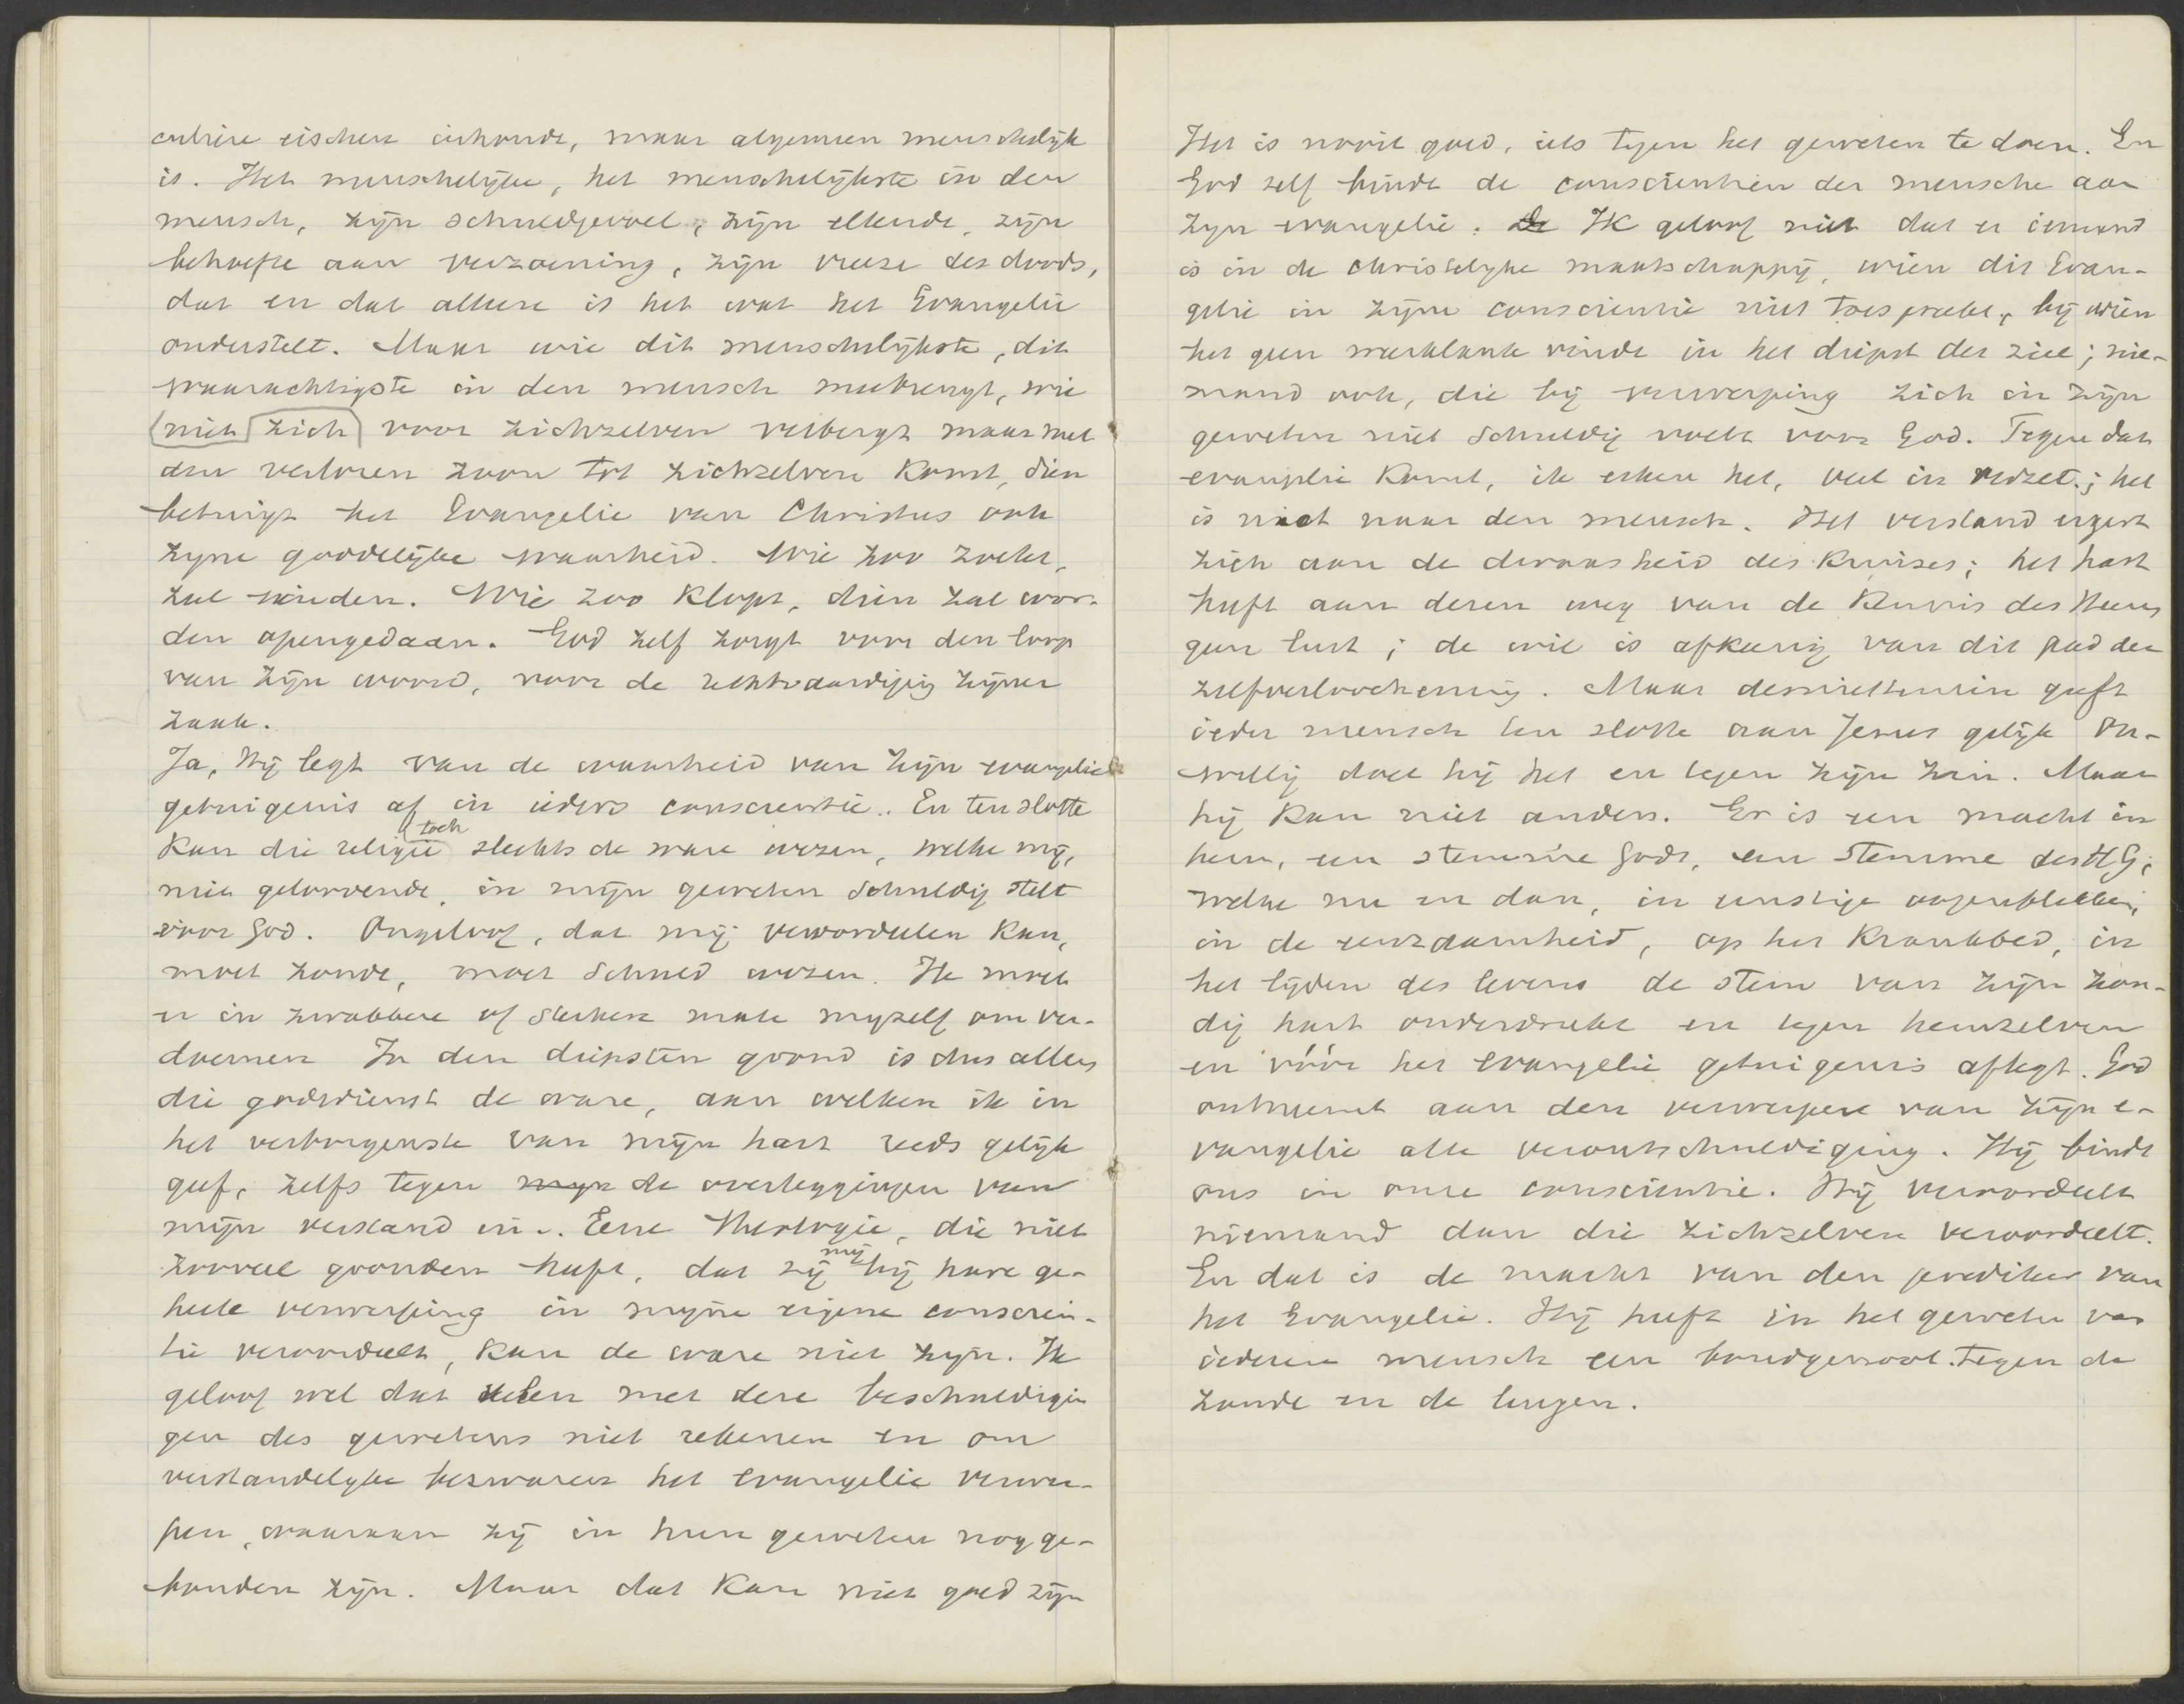 culiere eischen inhoudt, maar algemeen menschelijk
is. Het menschelijke, het menschelijkste in den
mensch, zijn schuldgevoel, zijn ellende, zijn
behoefte aan verzoening, zijn vreeze des doods,
dat en dat alleen is het wat het Evangelie
onderstelt. Maar wie dit menschelijkste, dit
waarachtigste in den mensch meebrengt, wie
niet zich voor zichzelven verbergt maar met
den verloren zoon tot zichzelven komt, dien
betuigt het Evangelie van Christus ook
zijne goddelijke waarheid. Wie zoo zoekt,
zal vinden. Wie zoo klopt, dien zal wor-
den opengedaan. God zelf zorgt voor den loop
van zijn woord, voor de rechtvaardiging zijner
zaak.
Ja, Hij legt van de waarheid van zijn evangelie
getuigenis af in ieders conscientie. En ten slotte
kan die religie toch slechts de ware wezen, welke mij,
niet geloovende, in mijn geweten schuldig stelt
voor God. Ongeloof, dat mij veroordeelen kan,
moet zonde, moet schuld wezen. Ik moet
er in zwakkere of sterkere mate mijzelf om ver-
doemen. In den diepsten grond is dus alleen
die godsdienst de ware, aan welken ik in
het verborgenste van mijn hart reeds gelijk
geef, zelfs tegen mijn de overleggingen van
mijn verstand in. Eene theologie, die niet
zooveel gronden heeft, dat zij mij bij hare ge-
heele verwerping in mijne eigene conscien-
tie veroordeelt, kan de ware niet zijn. Ik
geloof wel dat velen met deze beschuldigin
gen des gewetens niet rekenen en om
verstandelijke bezwaren het evangelie verwer-
pen, waaraan zij in hun geweten nog ge-
bonden zijn. Maar dat kan niet goed zijn
Het is nooit goed, iets tegen het geweten te doen. En
God zelf bindt de conscientien der mensche aan
zijn evangelie. De Ik geloof niet dat er iemand
is in de christelijke maatschappij, wien dit Evan-
gelie in zijne conscientie niet toespreekt, bij wien
het geen weerklank vindt in het diepst der ziel; nie-
mand ook, die bij verwerping zich in zijn
geweten niet schuldig voelt voor God. Tegen dat
evangelie komt, ik erken het, veel in verzet; het
is niet naar den mensch. Het verstand ergert
zich aan de dwaasheid des kruises; het hart
heeft aan dezen weg van de kennis des Heeren
geen lust; de wil is afkeerig van dit pad der
zelfverloochening. Maar desniettemin geeft
ieder mensch ten slotte aan Jezus gelijk On-
willig doet hij het en tegen zijn zin. Maar
hij kan niet anders. Er is een macht in
hem, een stemme Gods, een stemme des H G;
welke nu en dan, in ernstige oogenblikken,
in de eenzaamheid, op het krankbed, in
het lijden des levens de stem van zijn zon-
dig hart onderdrukt en tegen hemzelven
en vóór het evangelie getuigenis aflegt. God
ontneemt aan den verwerper van zijn e-
vangelie alle verontschuldiging. Hij bindt
ons in onze conscientie. Hij veroordeelt
niemand dan die zichzelven veroordeelt.
En dat is de macht van den prediker van
het Evangelie. Hij heeft in het geweten van
iederen mensch een bondgenoot tegen de
zonde en de leugen.